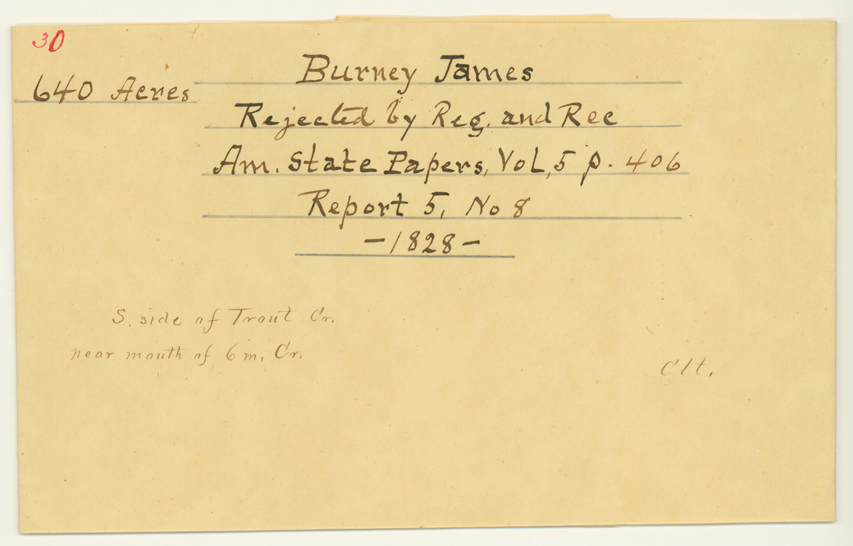 30
640 Acres
Burney James
Rejected by Reg. and Rec
Am. State Papers, Vol, 5 p. 406
Report 5, No 8
-1828-
S. side of Trout Cr.
near mouth of 6 m. Cr.
Clt.